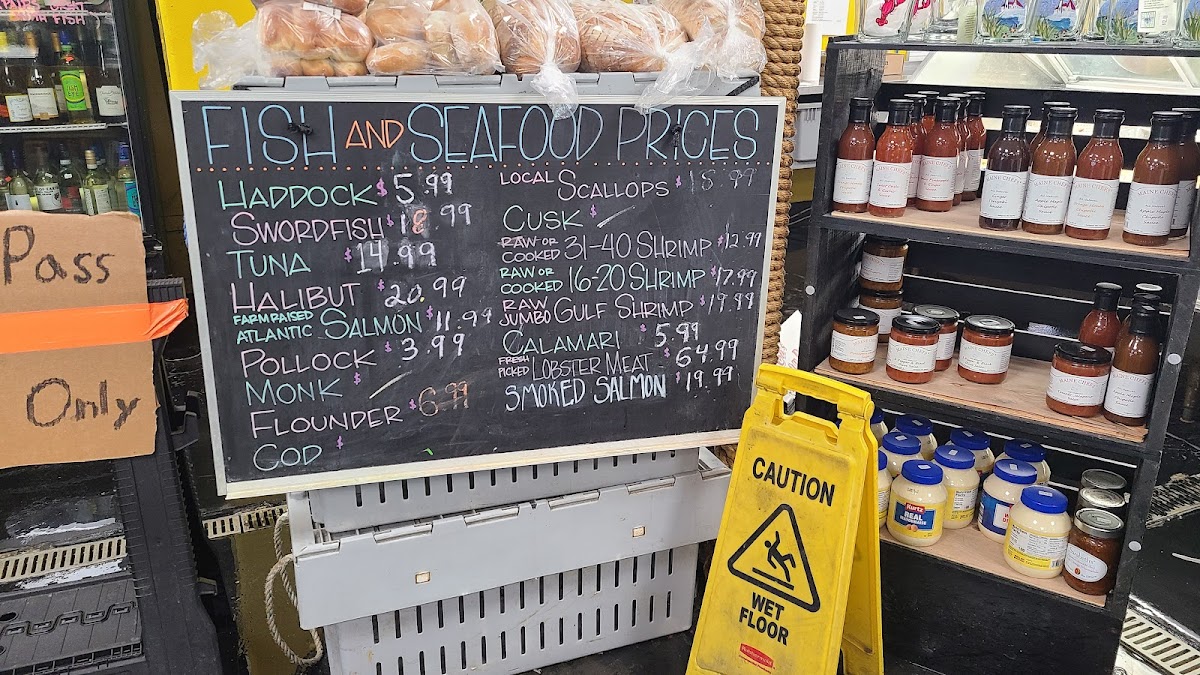 FISH AND SEAFOOD PRICES
HADDOCK $5.99
SWORDFISH $18.99
TUNA $14.99
HALIBUT $20.99
FARM RAISED
ATLANTIC SALMON $11.99
POLLOCK $3.99
MONK $
FLOUNDER $6.99
COD $
LOCAL SCALLOPS $18.99
CUSK $
RAW OR
COOKED 31-40 SHRIMP $12.99
RAW OR
COOKED 16-20 SHRIMP $17.99
RAW
JUMBO GULF SHRIMP $19.99
CALAMARI $5.99
FRESH
PICKED LOBSTER MEAT $64.99
SMOKED SALMON $19.99
Pass
Only
CAUTION
WET
FLOOR
Rubbermaid
MAINE CHEF
MAINE CHEF
MAINE CHEF
MAINE CHEF
Kurtz
REAL